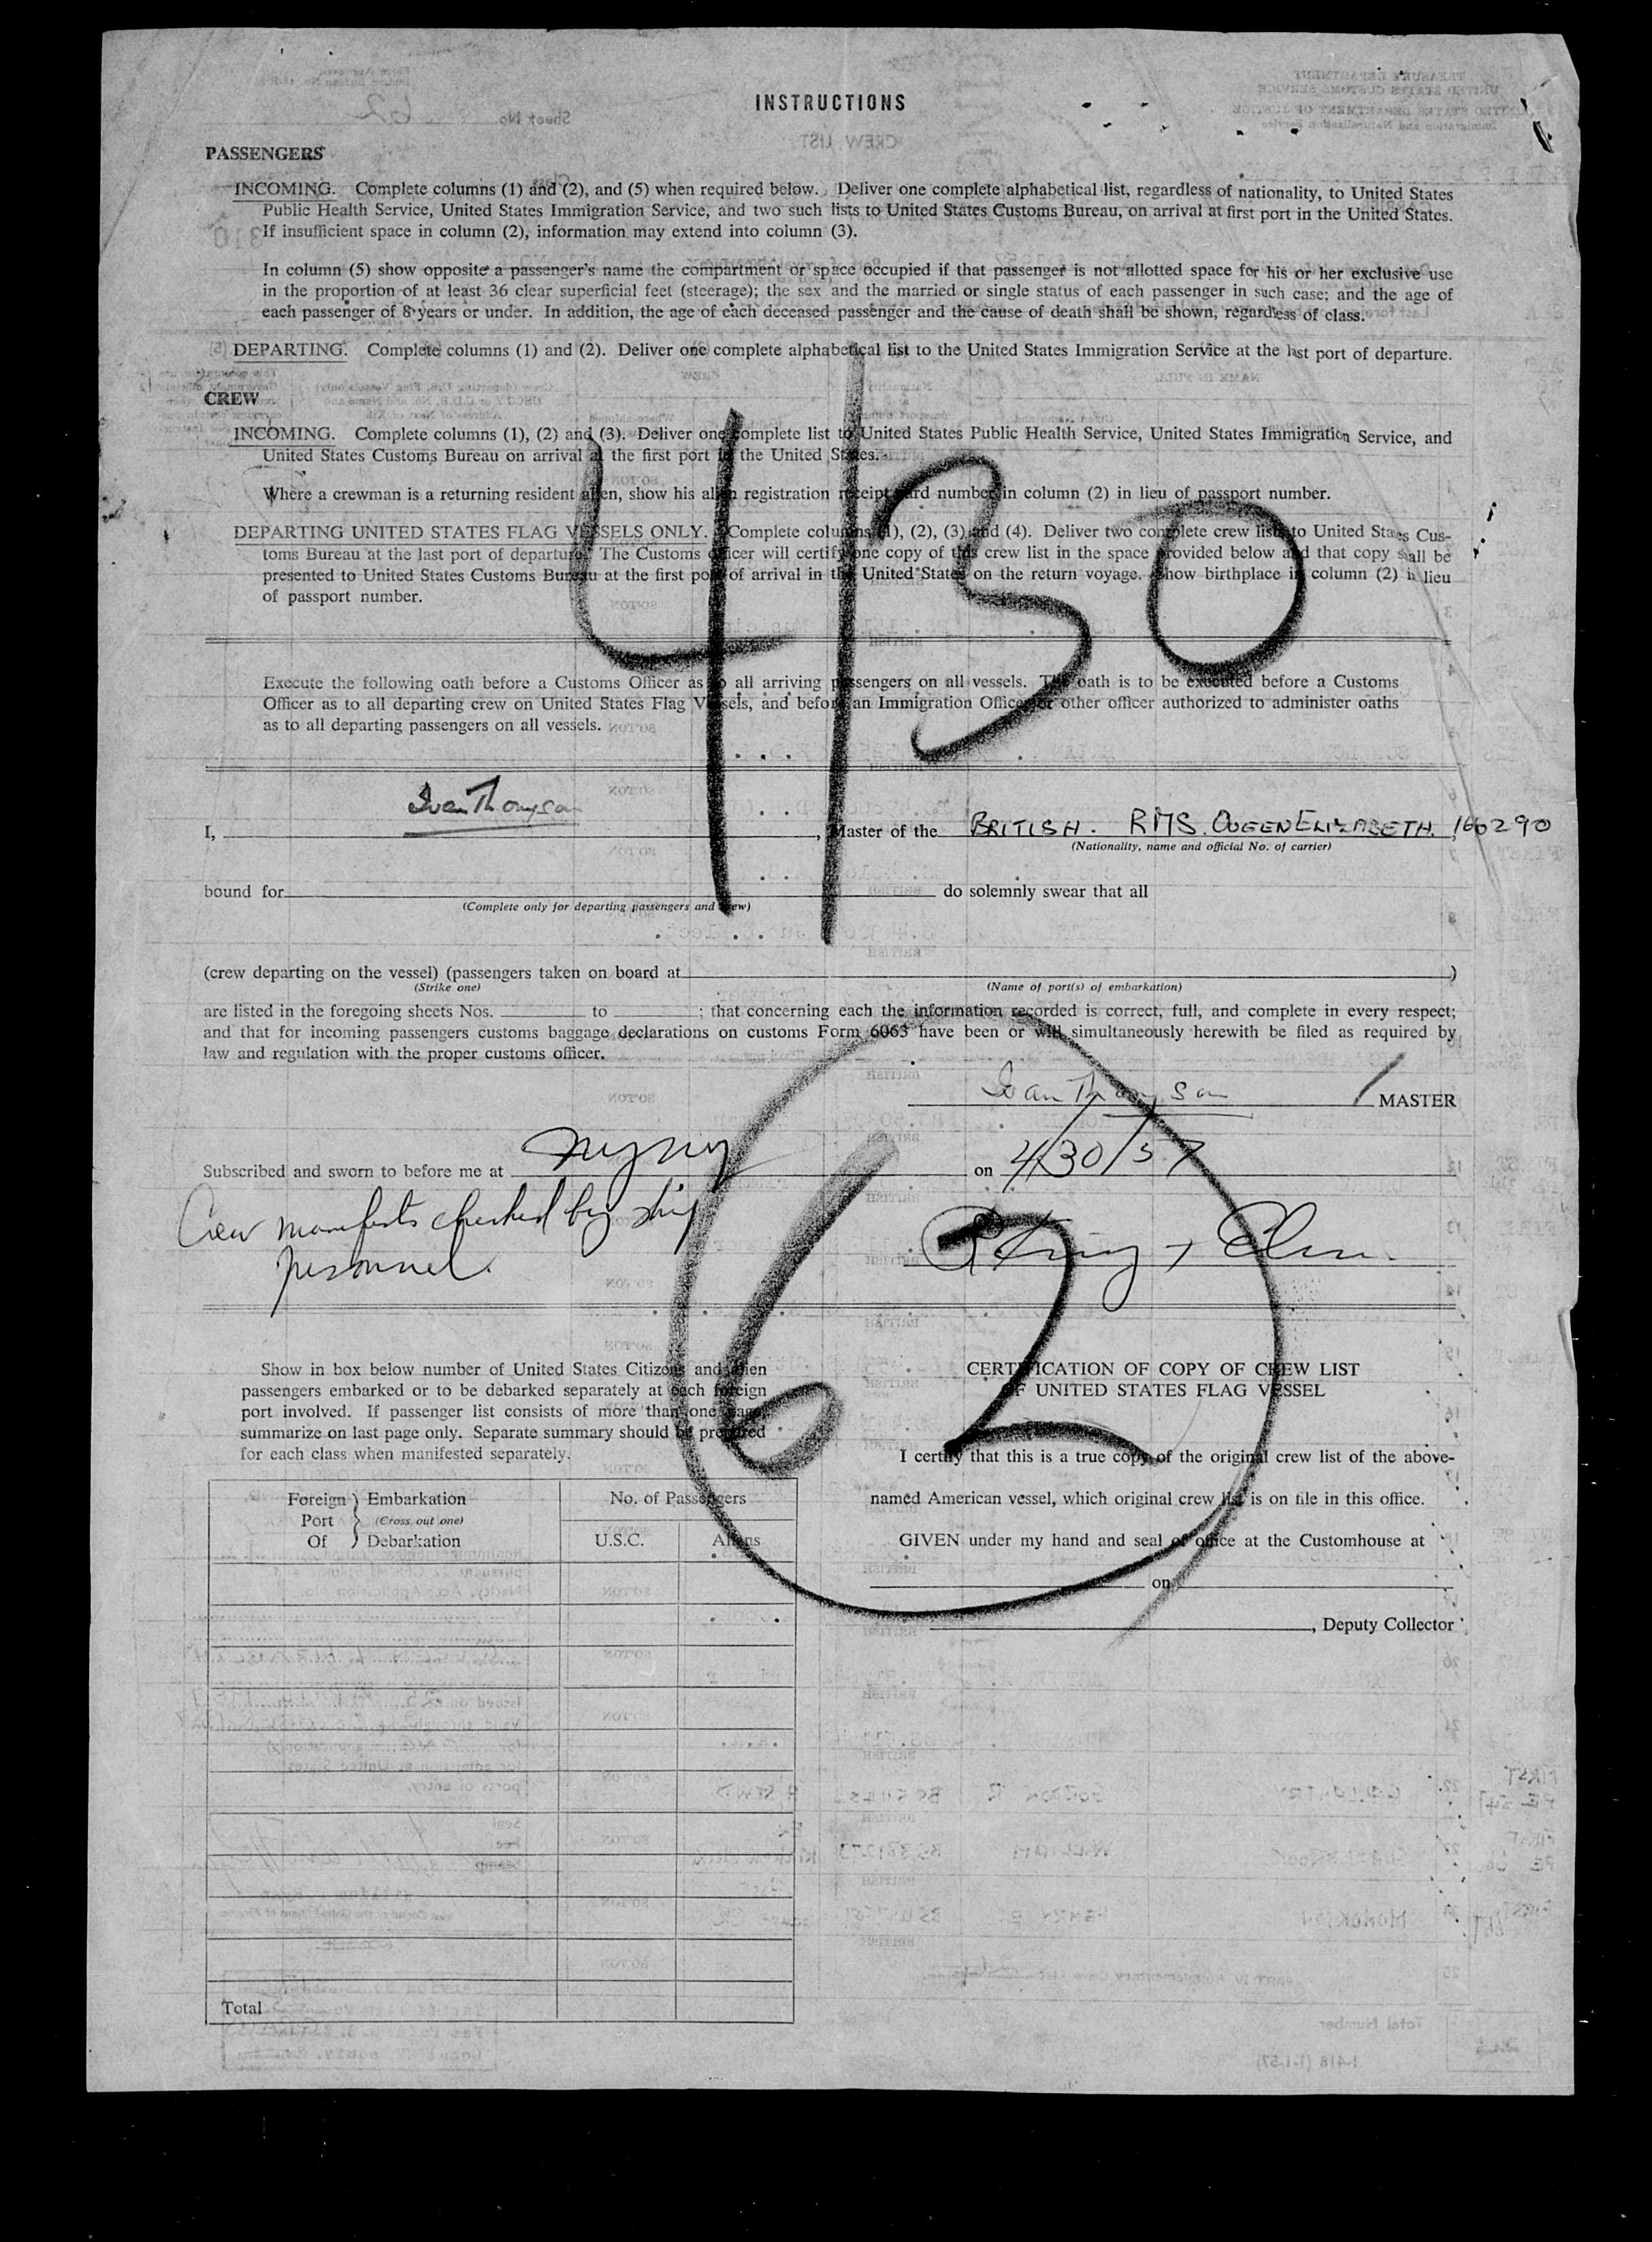 INSTRUCTIONS
PASSENGERS
INCOMING. Complete columns (1) and (2), and (5) when required below. Deliver one complete alphabetical list, regardless of nationality, to United States
Public Health Service, United States Immigration Service, and two such lists to United States Customs Bureau, on arrival at first port in the United States.
If insufficient space in column (2), information may extend into column (3).
In column (5) show opposite a passenger's name the compartment or space occupied if that passenger is not allotted space for his or her exclusive use
in the proportion of at least 36 clear superficial feet (steerage); the sex and the married or single status of each passenger in such case; and the age of
each passenger of 8 years or under. In addition, the age of each deceased passenger and the cause of death shall be shown, regardless of class.
DEPARTING. Complete columns (1) and (2). Deliver one complete alphabetical list to the United States Immigration Service at the last port of departure.
CREW
INCOMING. Complete columns (1), (2) and (3). Deliver one complete list to United States Public Health Service, United States Immigration Service, and
United States Customs Bureau on arrival at the first port in the United States.
Where a crewman is a returning resident alien, show his alien registration receipt card number in column (2) in lieu of passport number.
DEPARTING UNITED STATES FLAG VESSELS ONLY. Complete columns (1), (2), (3) and (4). Deliver two complete crew lists to United States Cus-
toms Bureau at the last port of departure. The Customs officer will certify one copy of this crew list in the space provided below and that copy shall be
presented to United States Customs Bureau at the first port of arrival in the United States on the return voyage. Show birthplace in column (2) in lieu
of passport number.
4/30
Execute the following oath before a Customs Officer as to all arriving passengers on all vessels. The oath is to be executed before a Customs
Officer as to all departing crew on United States Flag Vessels, and before an Immigration Officer or other officer authorized to administer oaths
as to all departing passengers on all vessels.
I, Ivan Thompson, Master of the BRITISH. RMS. QUEEN ELIZABETH, 166290
(Nationality, name and official No. of carrier)
bound for do solemnly swear that all
(Complete only for departing passengers and crew)
(crew departing on the vessel) (passengers taken on board at )
(Strike one) (Name of port(s) of embarkation)
are listed in the foregoing sheets Nos. to ; that concerning each the information recorded is correct, full, and complete in every respect;
and that for incoming passengers customs baggage declarations on customs Form 6063 have been or will simultaneously herewith be filed as required by
law and regulation with the proper customs officer.
Ivan Thompson MASTER
Subscribed and sworn to before me at NYNY on 4/30/57
Crew manifests checked by ship
personnel.
62
Show in box below number of United States Citizens and alien
passengers embarked or to be debarked separately at each foreign
port involved. If passenger list consists of more than one page,
summarize on last page only. Separate summary should be prepared
for each class when manifested separately.
Foreign Port Of } Embarkation (Cross out one) Debarkation
No. of Passengers
U.S.C. Aliens
Total
CERTIFICATION OF COPY OF CREW LIST
OF UNITED STATES FLAG VESSEL
I certify that this is a true copy of the original crew list of the above-
named American vessel, which original crew list is on file in this office.
GIVEN under my hand and seal of office at the Customhouse at
on
, Deputy Collector